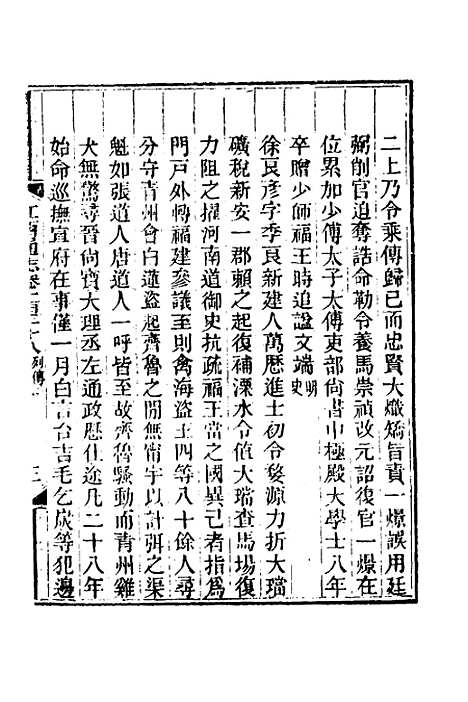 二上乃令乘傳歸已而忠賢大熾矯旨責一燝誤用廷
弼削官追奪誥命勒令養馬崇禎改元詔復官一燝在
位累加少傅太子太傅吏部尚書中極殿大學士八年
卒贈少師福王時追諡文端明史
徐良彥字季良新建人萬歷進士初令婺源力折大璫
礦稅新安一郡賴之起復補溧水令值大璫查馬場復
力阻之擢河南道御史抗疏福王當之國異己者指爲
門戸外轉福建參議至則禽海盜王四等八十餘人尋
分守青州會白蓮盜起齊魯之閒無甯宇以計弭之渠
魁如張道人唐道人一呼皆至故齊魯騷動而青州雞
犬無驚尋晉尚寶大理丞左通政歷仕途凡二十八年
始命巡撫宣府在事僅一月白言台吉毛乞炭等犯邊
江西通志卷一百三十八 列傳 三